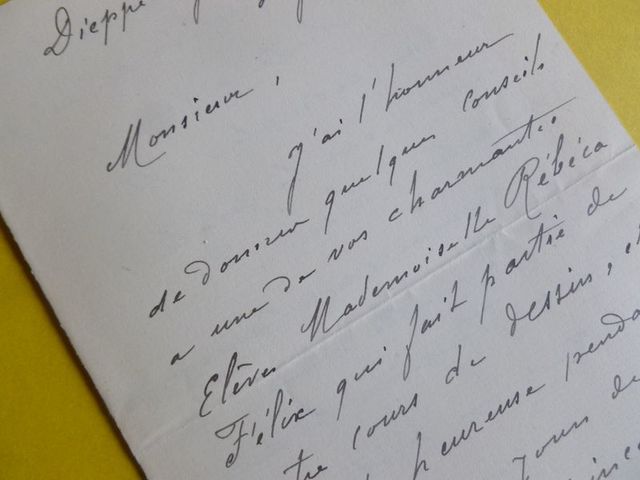 Dieppe
Monsieur,
j'ai l'honneur
de donner quelques conseils
a une de vos charmantes
Elèves Mademoiselle Rébéca
Félix qui fait partie de
tre cours de dessin, et
heureuse penda
jours de